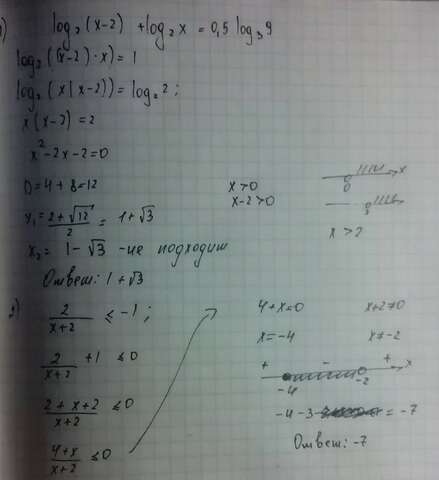 1) log₂(x-2) + log₂x = 0,5 log₃9
log₂((x-2)·x) = 1
log₂(x(x-2)) = log₂2;
x(x-2) = 2
x²-2x-2=0
D=4+8=12
x₁ = (2+√12)/2 = 1+√3
x₂ = 1-√3 -не подходит
Ответ: 1+√3
x>0
x-2>0
0 x
x>2
2) 2/(x+2) ≤ -1;
2/(x+2) +1 ≤0
(2+x+2)/(x+2) ≤0
(4+x)/(x+2) ≤0
4+x=0 x+2≠0
x=-4 x≠-2
+ - + x
-4 -2
-4-3 = -7
Ответ: -7